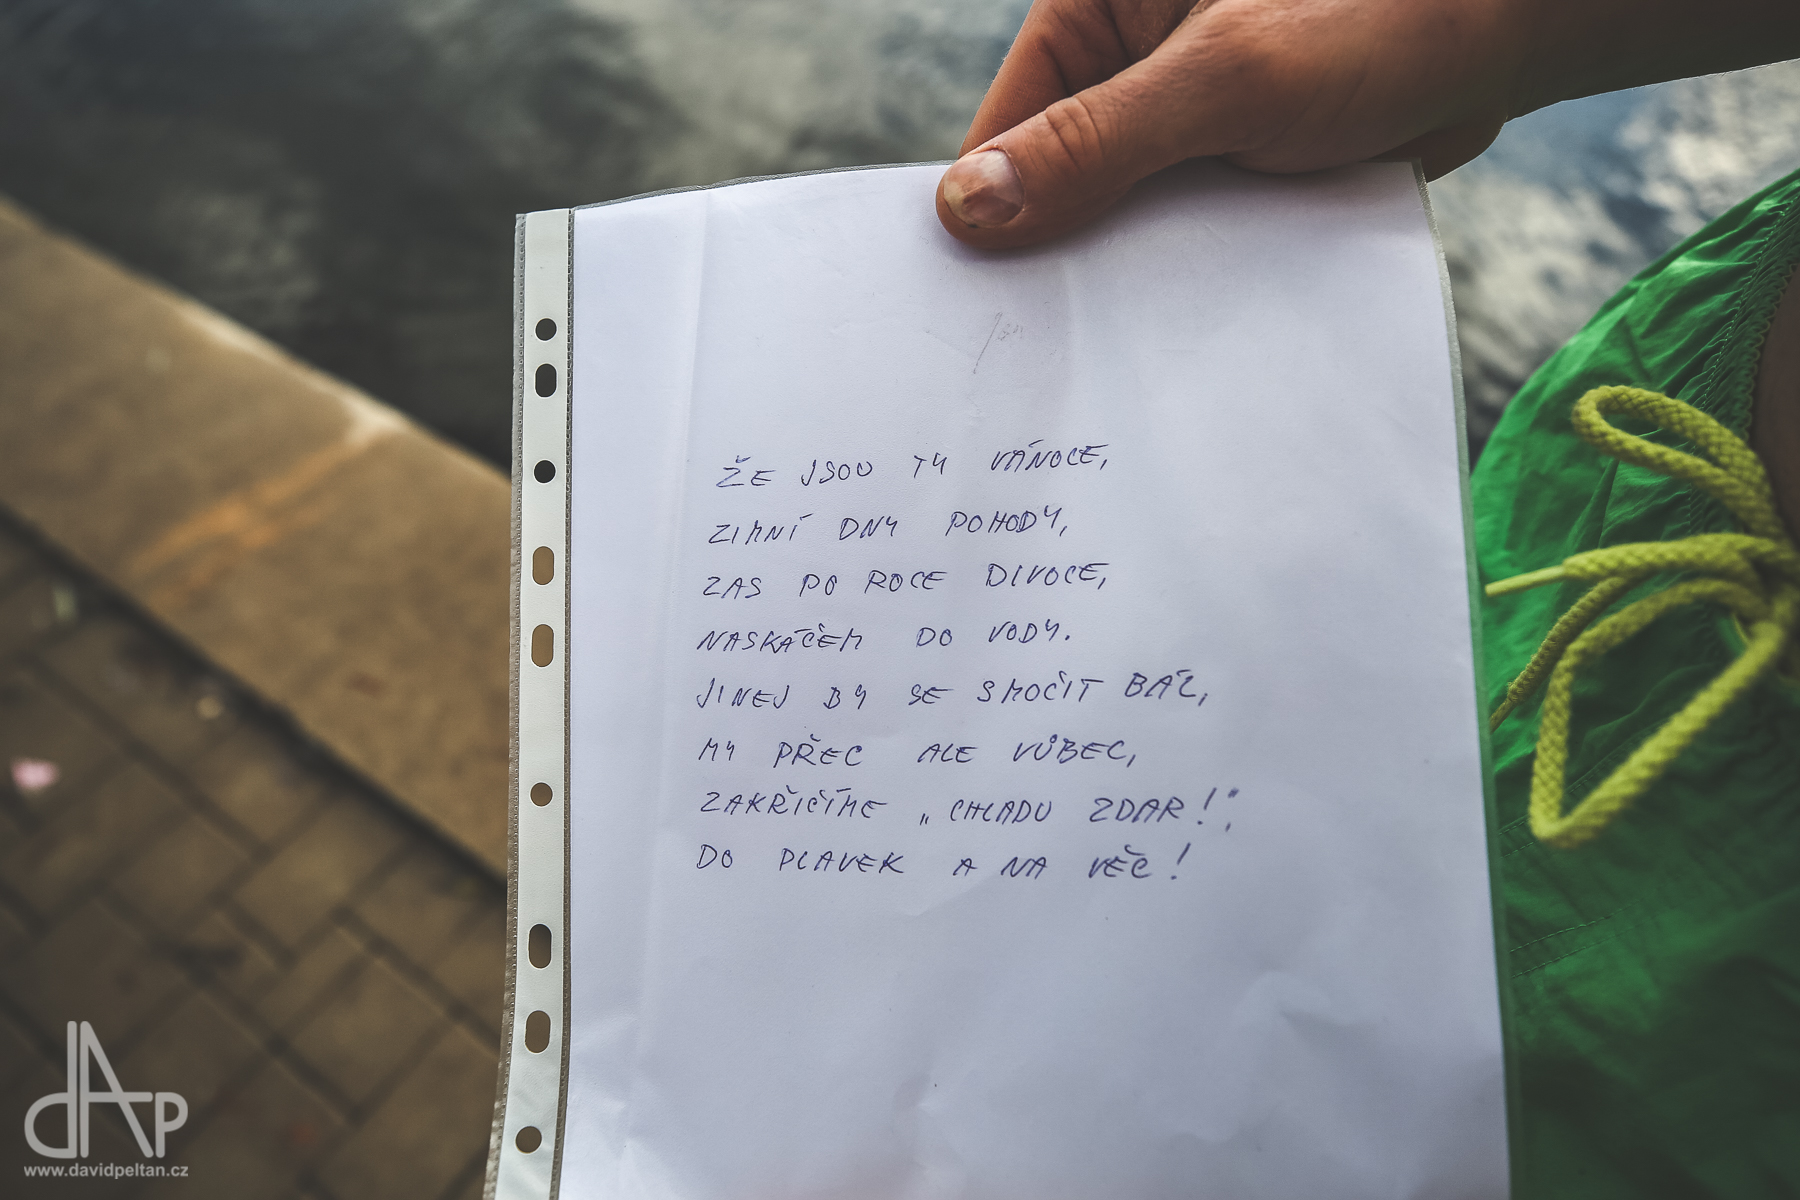 ŽE JSOU TY VÁNOCE,
ZIMNÍ DNY POHODY,
ZAS PO ROCE DIVOCE,
NASKÁČEM DO VODY.
JINEJ BY SE SMOČIT BÁL,
MY PŘEC ALE VŮBEC,
ZAKŘIČÍME „CHLADU ZDAR!“,
DO PLAVEK A NA VĚC!
dAp
www.davidpeltan.cz